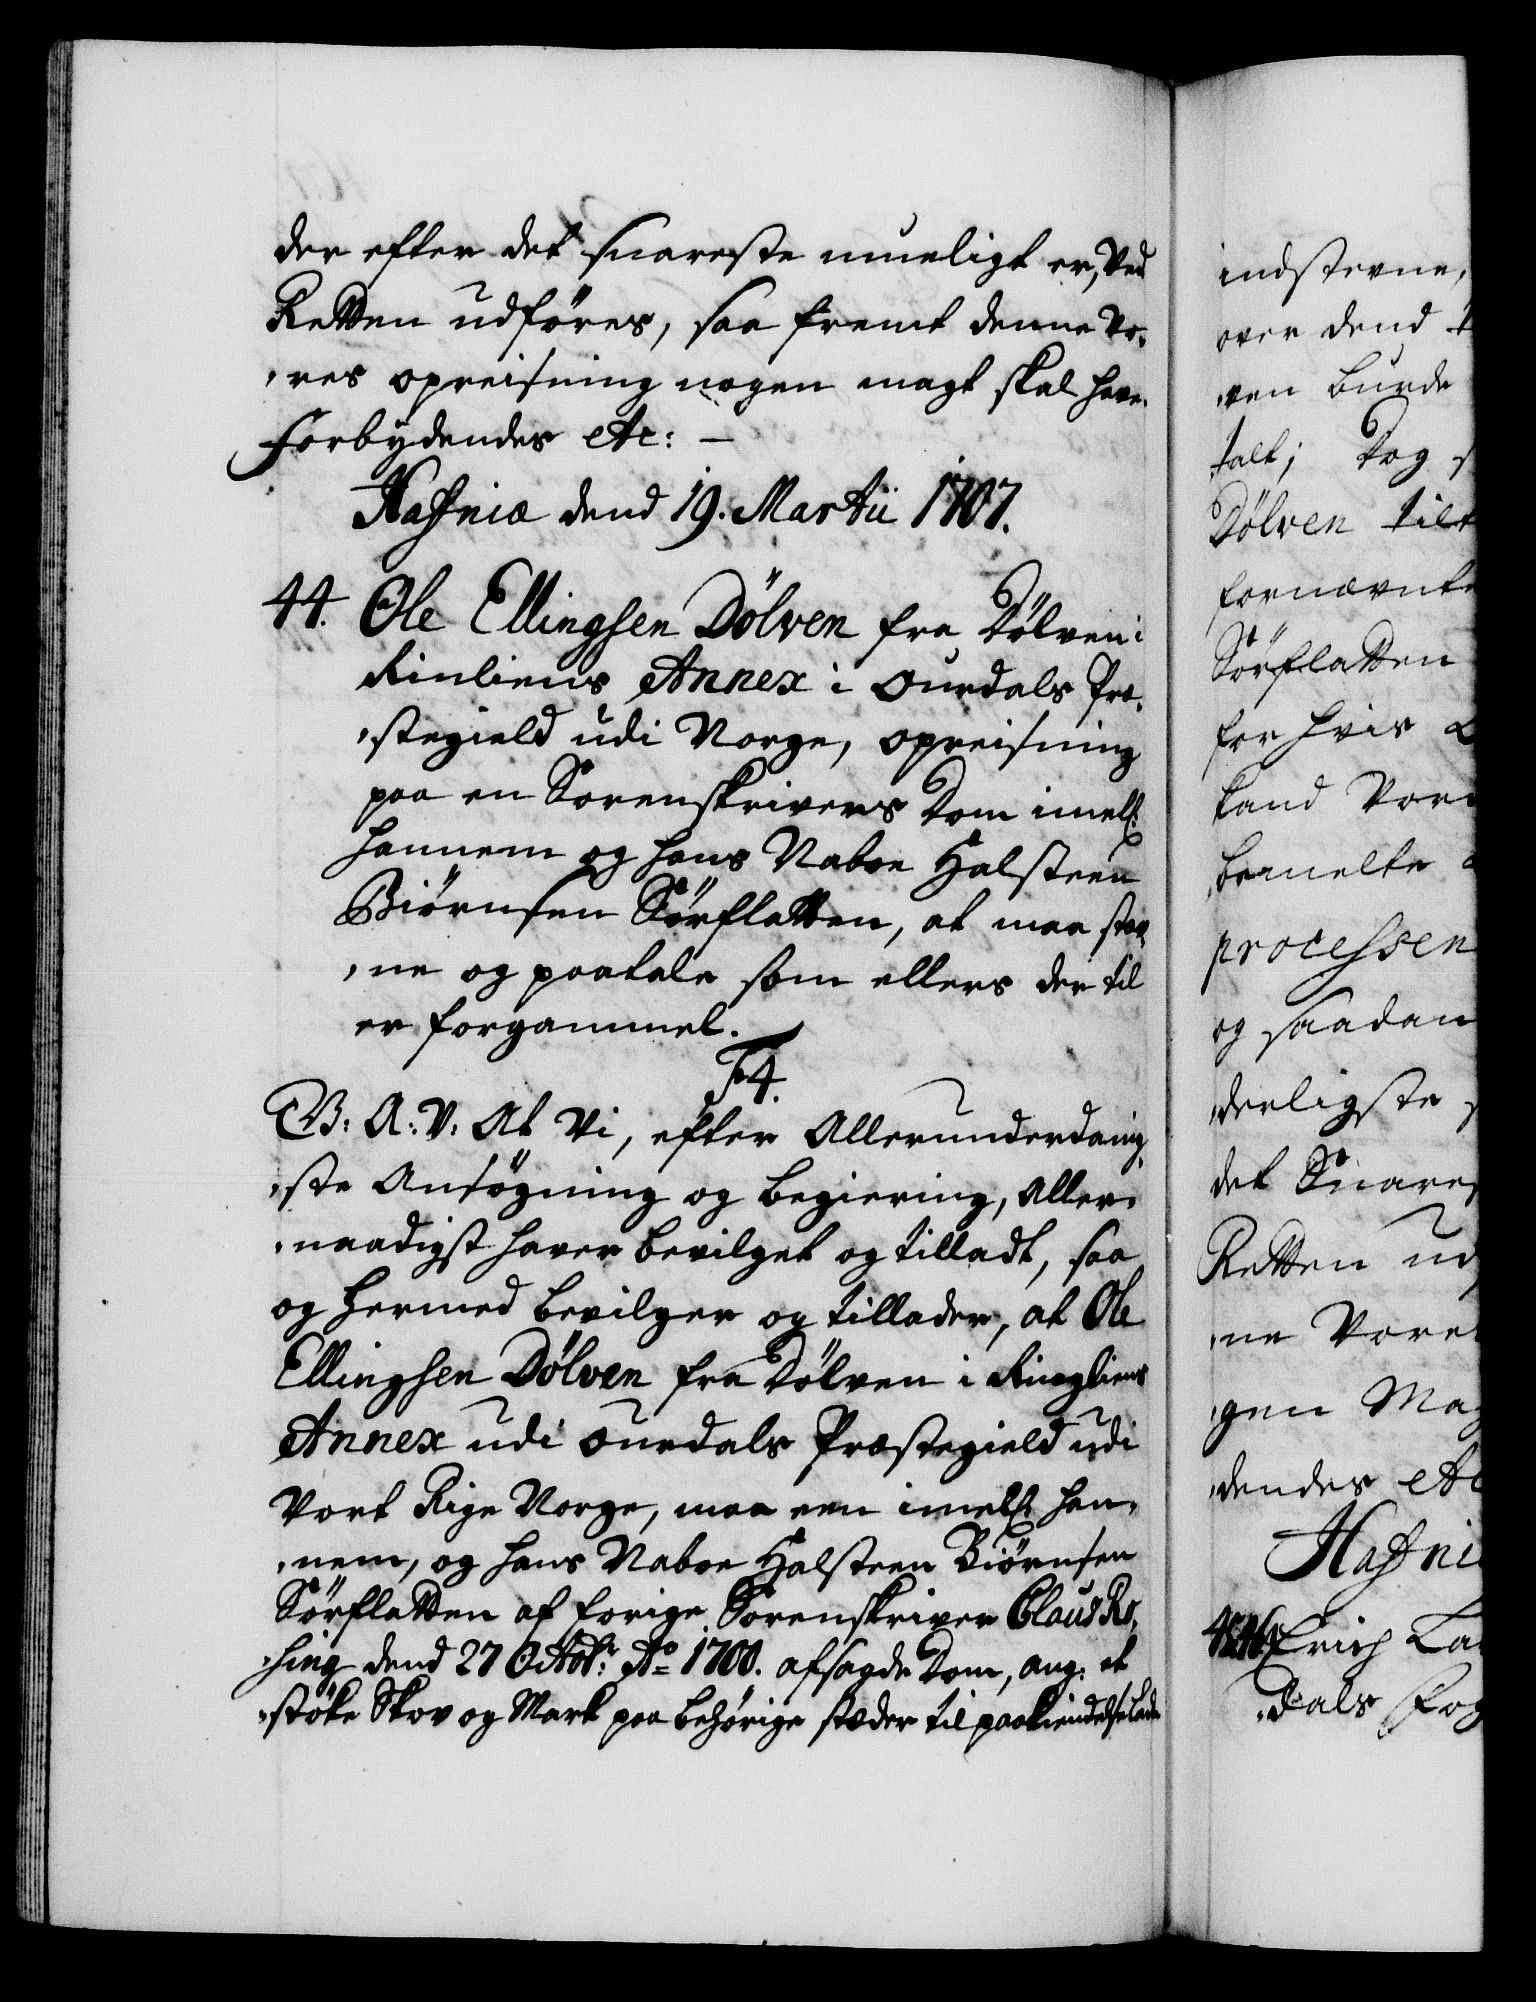 der efter det snareste mueligt er, Ved
Retten udføres, saa fremt denne Vo,
,res opreisning nogen magt skal have.
Forbydendes etc: —
Hafniæ dend 19. Martii 1707.
44. Ole Ellingsen Dölven fra Dölven i
Rinliens Annex i Ourdals Præ,
,stegield udi Norge, opreisning
paa en Sorenskrivers Dom imell:
hannem og hans Naboe Halsteen
Biörnsen Sörflatten, at maa stæv,
,ne og paatale som ellers der til
er forgammel.
F4.
G: A: V: At Vi, efter Allerunderdanig,
,ste Ansögning og begiering, Aller,
,naadigst haver bevilget og tilladt, saa
og hermed bevilger og tillader, at Ole
Ellingsen Dölven fra Dölven i Ringliens
Annex udi Ourdals Præstegield udi
Vort Rige Norge, maa een imell: han,
,nem, og hans Naboe Halsteen Biörnsen
Sörflatten af forige Sorenskriver Claus Rö,
,sing dend 27 Octobr: Ao 1700. afsagde Dom, ang: et
,støke Skov og Mark paa behörige stæder til paakiendelse lade
indstevne,
over dend
,ven burde
,talt; Dog
Dölven tilt
fornævnte
Sörflatten
for hvis
kand Vor
bemelte
processen
og saadan
,derligste
det Snares
Retten ud
,ne Vores
,gen Mag
,dendes etc
Hafni
Erich La
,dals Fog